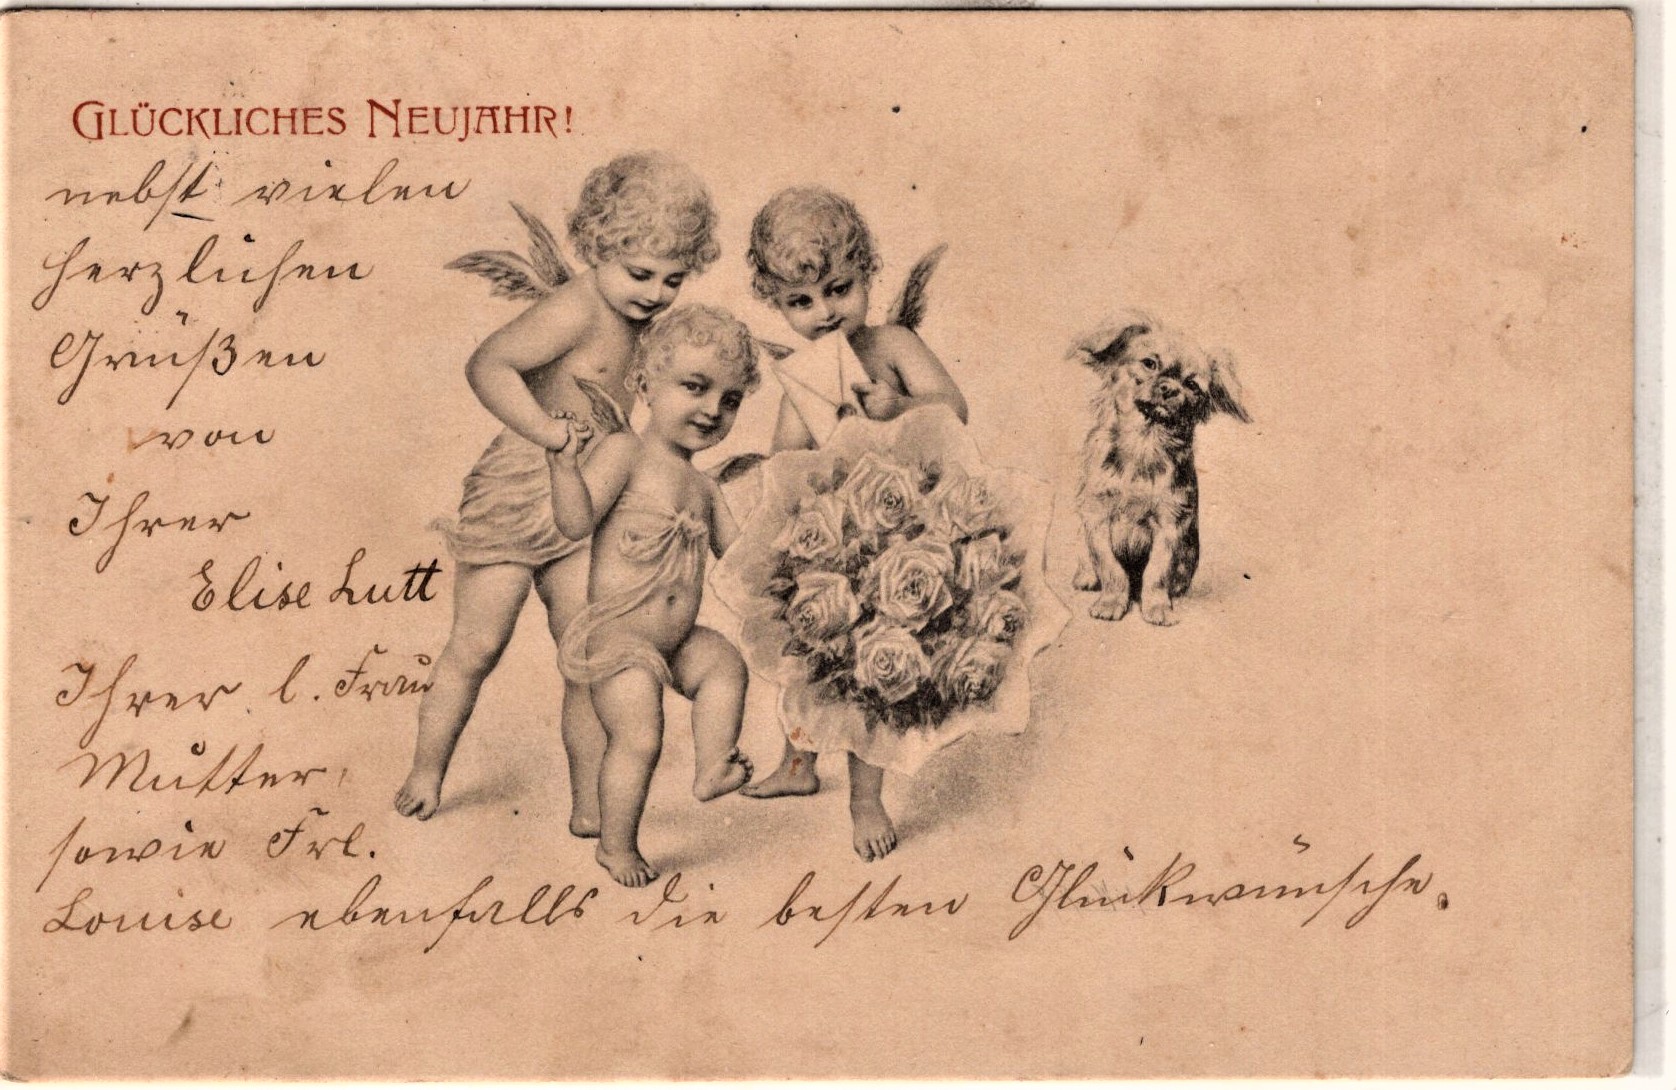 GLÜCKLICHES NEUJAHR!
nebst vielen
herzlichen
Grüßen
von
Ihrer
Elise Lutt
Ihrer l. Frau
Mutter,
sowie Frl.
Louise ebenfalls die besten Glückwünsche.